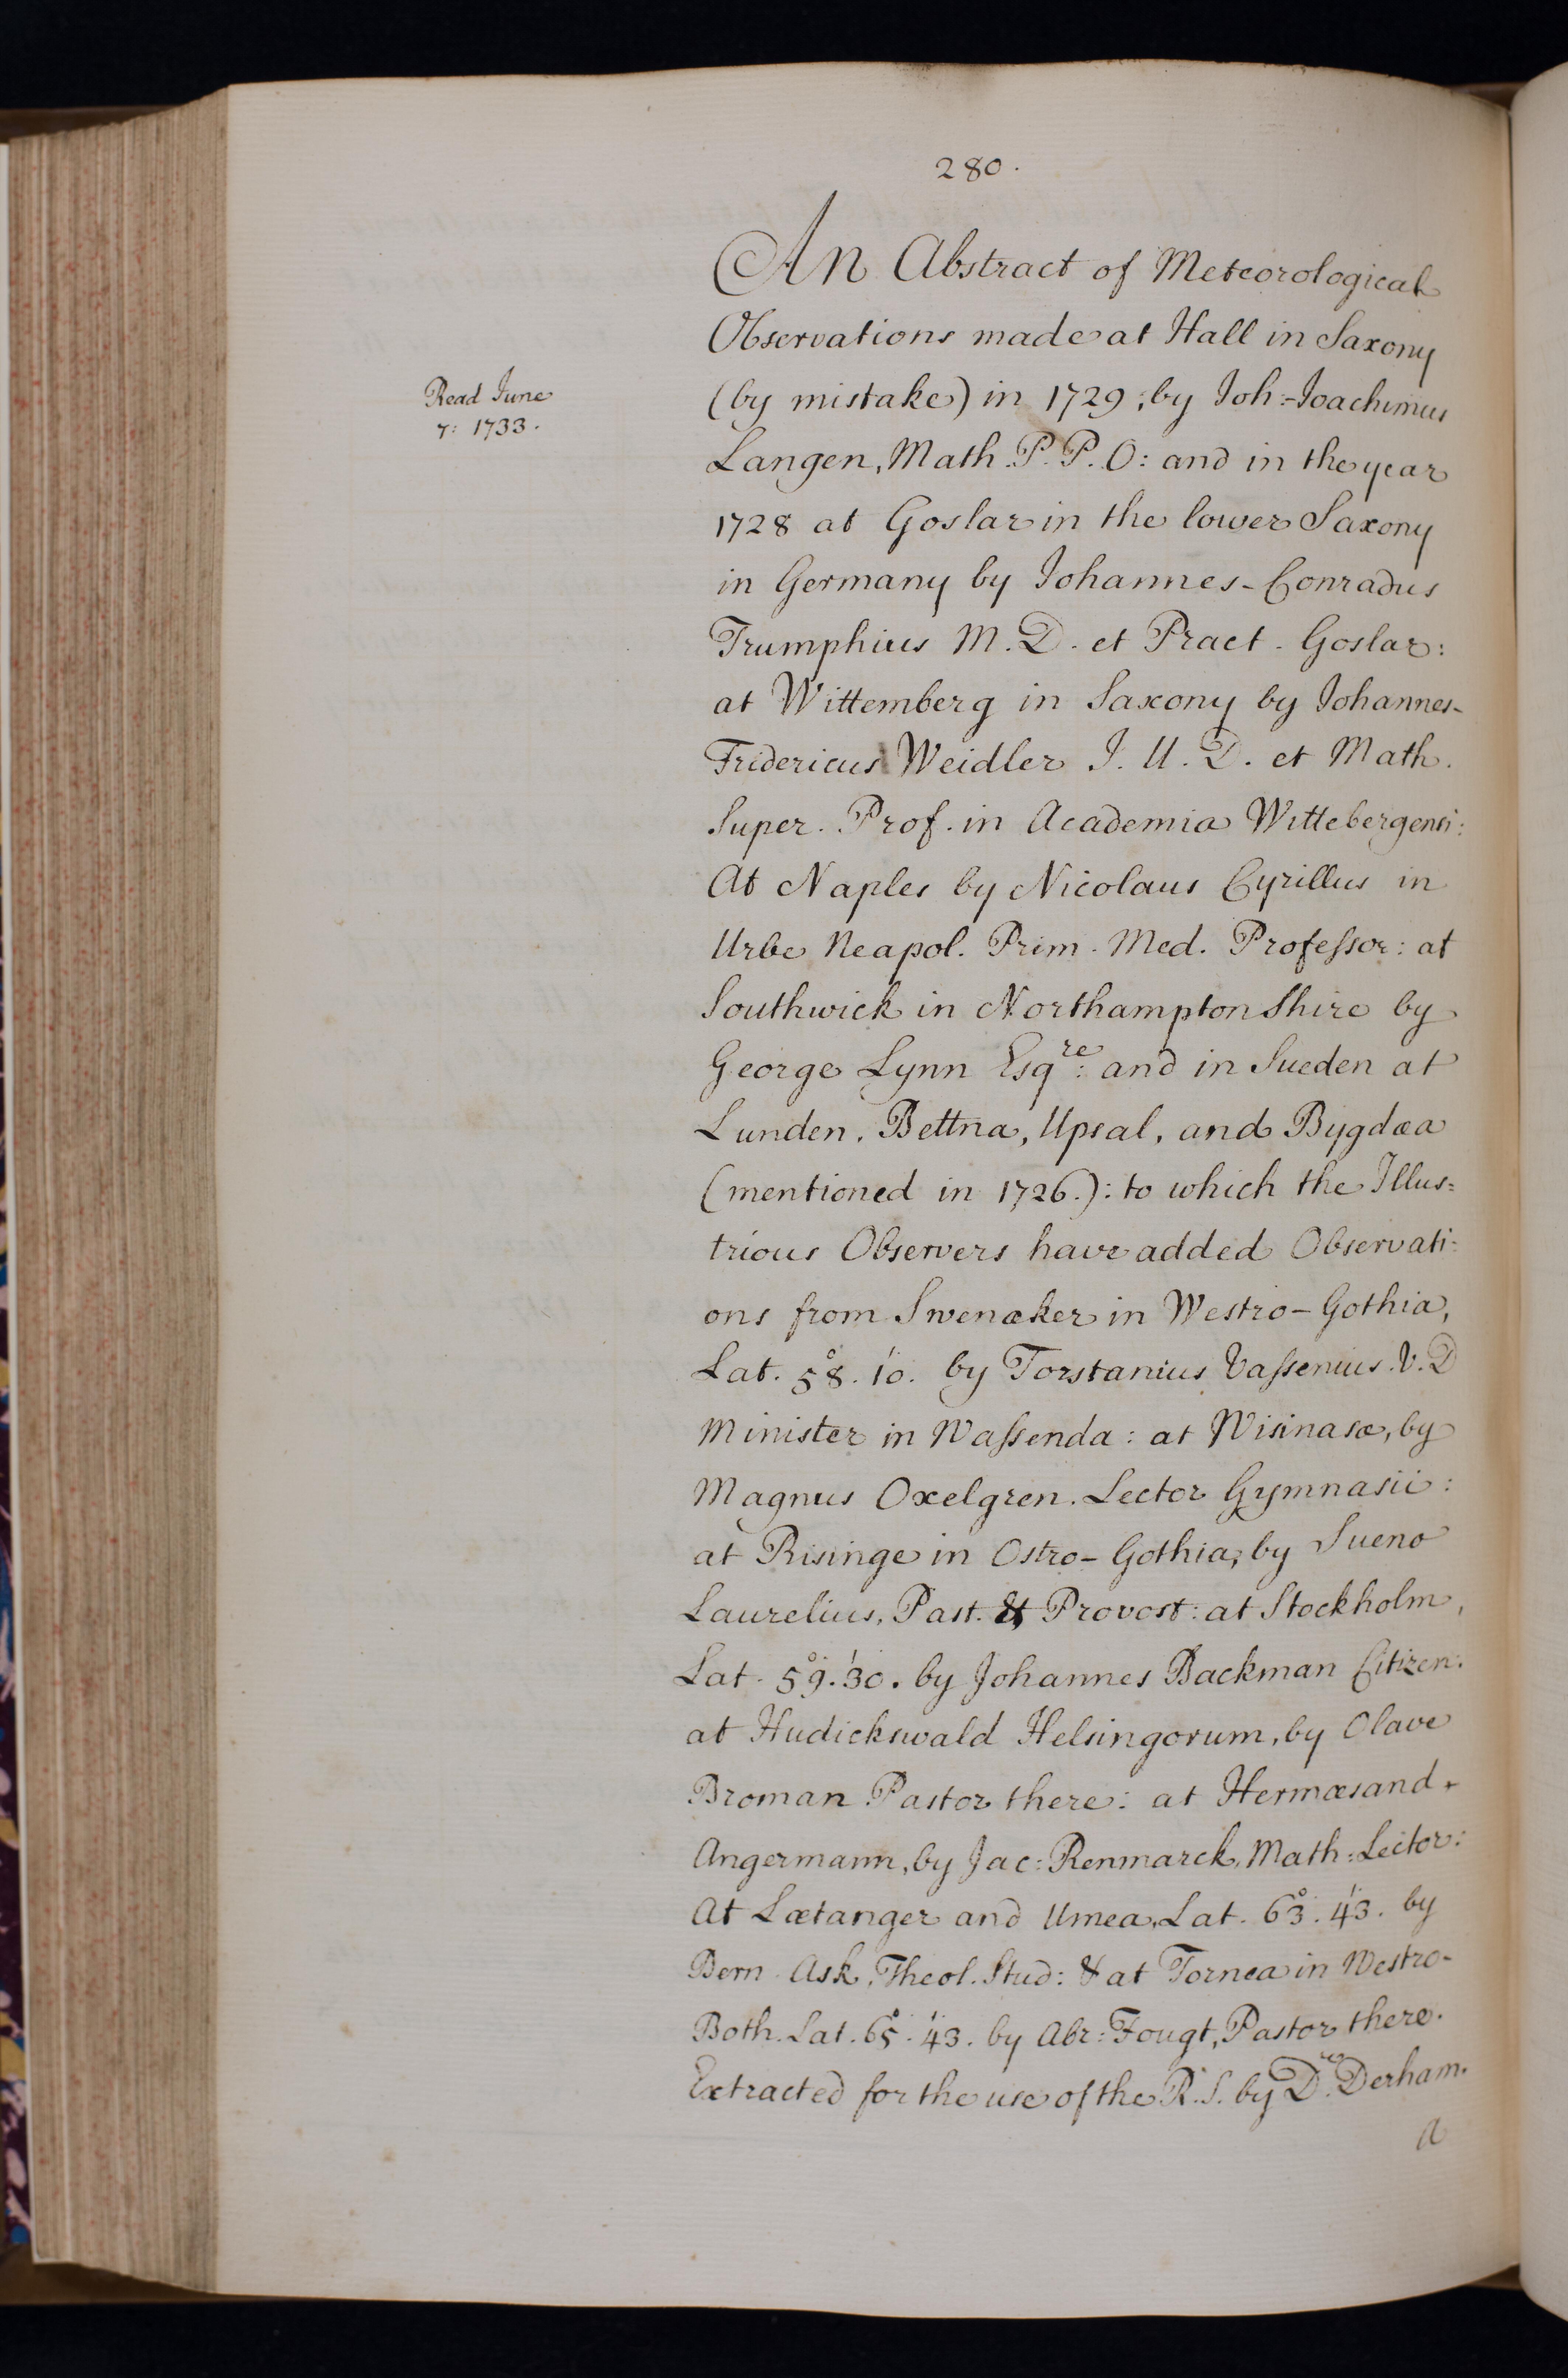 280.
An Abstract of Meteorological
Observations made at Hall in Saxony
(by mistake) in 1729; by Joh:-Joachimus
Read June
7: 1733.
Langen, Math. P. P. O: and in the year
1728 at Goslar in the lower Saxony
in Germany by Johannes-Conradus
Trumphius M. D. et Pract. Goslar:
at Wittemberg in Saxony by Johannes-
Fridericus Weidler J. U. D. et Math.
Super. Prof. in Academia Wittebergensi:
At Naples by Nicolaus Cyrillus in
Urbe Neapol. Prim. Med. Profeſsor: at
Southwick in Northampton Shire by
George Lynn Esqre: and in Sueden at
Lunden, Bettna, Upsal, and Bygdæa
(mentioned in 1726.): to which the Illus=
trious Observers have added Observati=
ons from Swenæker in Westro-Gothia,
Lat. 58°. 10'. by Torstanius Vaſsenius. V. D
Minister in Waſsenda: at Wisinasæ, by
Magnus Oxelgren. Lector Gymnasii:
at Risinge in Ostro-Gothia, by Sueno
Laurelius, Past. & Provost: at Stockholm,
Lat. 59°. 30'. by Johannes Backman Citizen:
at Hudickswald Helsingorum, by Olave
Broman Pastor there: at Hermæsand.
Angermann, by Jac: Renmarck, Math: Lector:
At Lætanger and Umea, Lat. 63°. 43'. by
Bern. Ask, Theol. Stud: & at Tornea in Westro-
Both. Lat. 65°. 43'. by Abr: Fougt, Pastor there.
Extracted for the use of the R. S. by Dr. Derham.
A